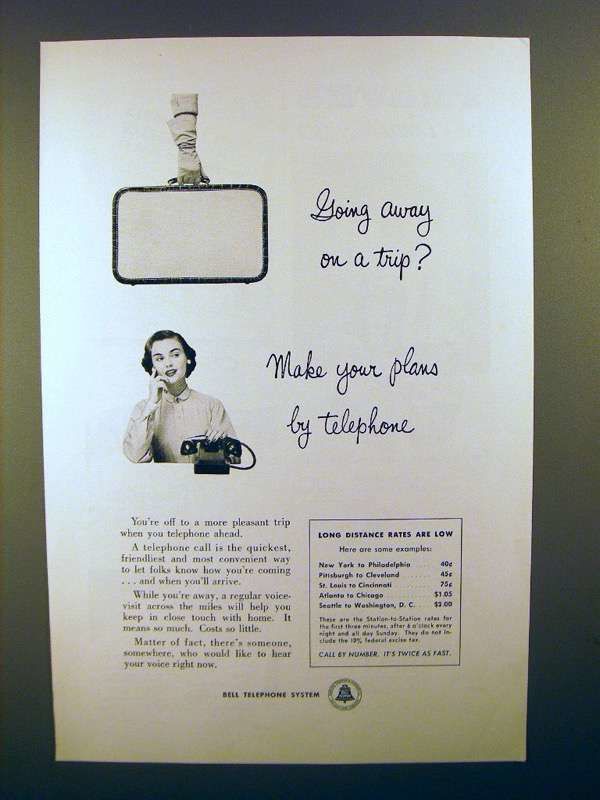 Going away
on a trip?
Make your plans
by telephone
You're off to a more pleasant trip
when you telephone ahead.
A telephone call is the quickest,
friendliest and most convenient way
to let folks know how you're coming
. . . and when you'll arrive.
While you're away, a regular voice-
visit across the miles will help you
keep in close touch with home. It
means so much. Costs so little.
Matter of fact, there's someone,
somewhere, who would like to hear
your voice right now.
LONG DISTANCE RATES ARE LOW
Here are some examples:
New York to Philadelphia . . . . 40¢
Pittsburgh to Cleveland . . . . 45¢
St. Louis to Cincinnati . . . . 75¢
Atlanta to Chicago . . . . $1.05
Seattle to Washington, D. C. . . $2.00
These are the Station-to-Station rates for
the first three minutes, after 6 o'clock every
night and all day Sunday. They do not in-
clude the 10% federal excise tax.
CALL BY NUMBER. IT'S TWICE AS FAST.
BELL TELEPHONE SYSTEM